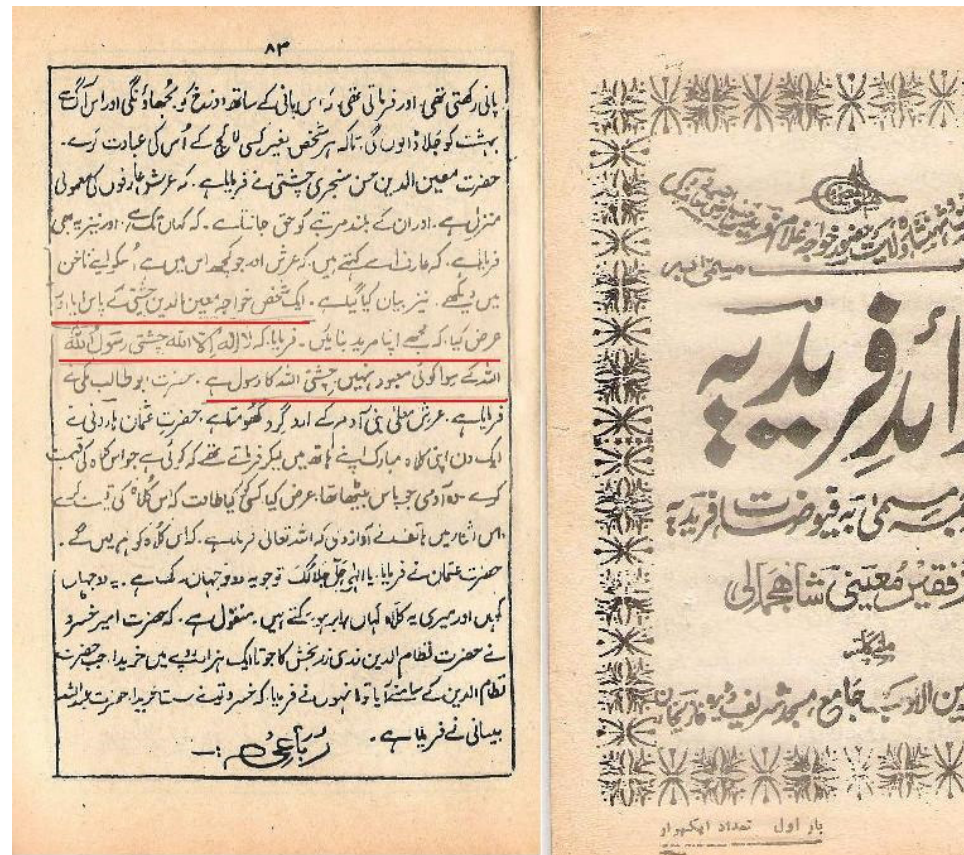 ۸۳
پانی رکھتی تھی، اور فرماتی تھی، کہ اس پانی کے ساتھ دوزخ کو بجھاؤنگی اور اس آگ سے
بہشت کو جلا ڈالوں گی تاکہ ہر شخص بغیر کسی لالچ کے اُس کی عبادت کرے۔
حضرت معین الدین حسن سنجری چشتی نے فرمایا ہے۔ کہ عرش عارفوں کی معمولی
منزل ہے۔ اور ان کے بلند مرتبے کو حق جانتا ہے۔ کہ کہاں تک ہے، اور نیز یہ بھی
فرمایا ہے۔ کہ عارف اسے کہتے ہیں، کہ عرش اور جو کچھ اس میں ہے، اُسکو اپنے ناخن
میں دیکھے۔ نیز بیان کیا گیا ہے۔ ایک شخص خواجہ معین الدین چشتی کے پاس آیا اور
عرض کیا، کہ مجھے اپنا مرید بنائیں۔ فرمایا، کہ لا إله إلا الله چشتی رسول الله
اللہ کے سوا کوئی معبود نہیں، چشتی اللہ کا رسول ہے۔ حضرت ابو طالب مکی نے
فرمایا ہے۔ عرش معلی بنی آدم کے ارد گرد گھومتا ہے۔ حضرت عثمان ہارونی نے
ایک دن اپنی کلاہ مبارک اپنے ہاتھ میں لیکر فرماتے تھے کہ کوئی ہے جو اس کلاہ کی قیمت
کرے۔ وہ آدمی جو پاس بیٹھا تھا، عرض کیا، کسکی کیا طاقت کہ اس کلاہ کی قیمت کرے
اس اثنا میں ہاتف نے آواز دی کہ اللہ تعالیٰ فرماتا ہے۔ کہ اس کلاہ کو ہم لیں گے۔
حضرت عثمان نے فرمایا، یا الہٰی جل جلالک تو جو یہ دو جہاں رکھتا ہے۔ یہ دو جہاں
کہاں اور میری یہ کلاہ کہاں برابر ہو سکتے ہیں۔ منقول ہے۔ کہ حضرت امیر خسرو
نے حضرت نظام الدین زری زر بخش کا جوتا ایک ہزار روپے میں خریدا، جب حضرت
نظام الدین کے سامنے آیا تو انہوں نے فرمایا، کہ خسرو تو نے سستا خریدا، حضرت عبداللہ
بیانی نے فرمایا ہے۔ رُباعی
شہنشاہ ولایت حضور خواجہ غلام فرید
ائدِ فریدیہ
مسمیٰ بہ فیوضات فریدیہ
فقیر مُعینی شاہجمالی
جامع مسجد شریف ڈیرہ غازیخان
بار اول تعداد ایکہزار